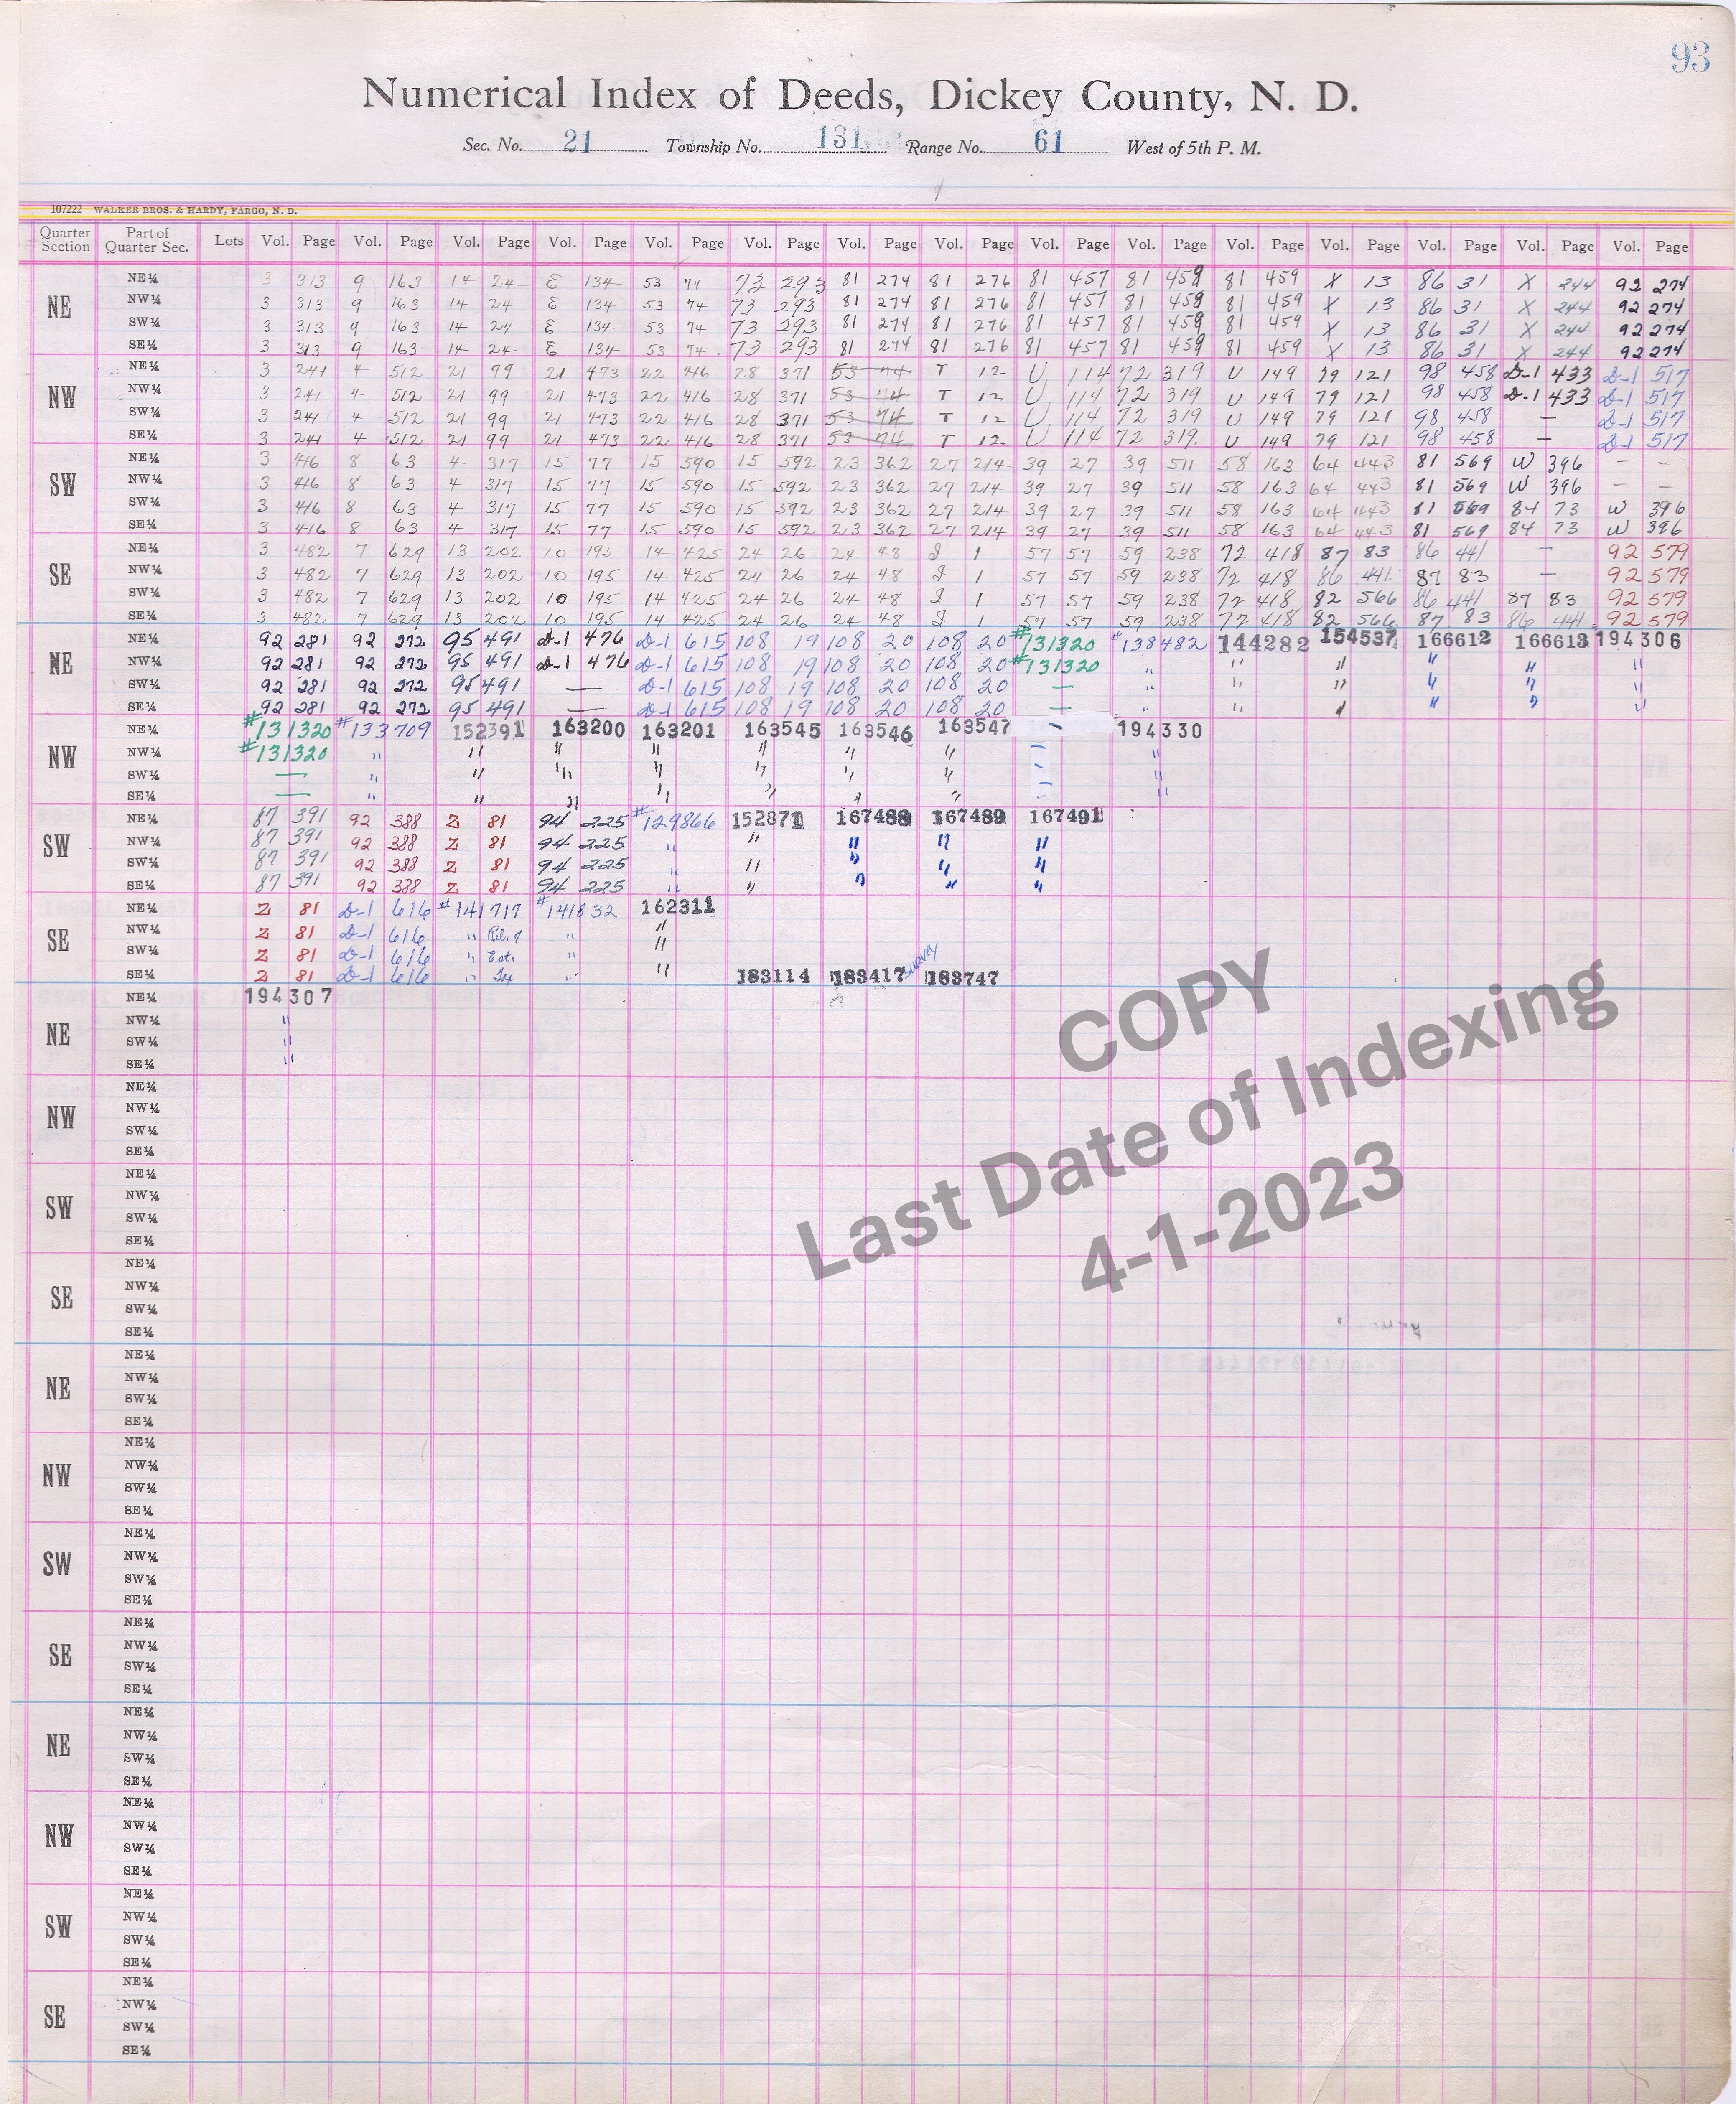 93
Numerical Index of Deeds, Dickey County, N. D.
Sec. No. 21 Township No. 131 Range No. 61 West of 5th P. M.
107222 WALKER BROS. & HARDY, FARGO, N. D.
Quarter Section Part of Quarter Sec. Lots Vol. Page Vol. Page Vol. Page Vol. Page Vol. Page Vol. Page Vol. Page Vol. Page Vol. Page Vol. Page Vol. Page Vol. Page Vol. Page Vol. Page Vol. Page
NE
NE¼ 3 313 9 163 14 24 E 134 53 74 73 293 81 274 81 276 81 457 81 459 81 459 X 13 86 31 X 244 92 274
NW¼ 3 313 9 163 14 24 E 134 53 74 73 293 81 274 81 276 81 457 81 459 81 459 X 13 86 31 X 244 92 274
SW¼ 3 313 9 163 14 24 E 134 53 74 73 293 81 274 81 276 81 457 81 459 81 459 X 13 86 31 X 244 92 274
SE¼ 3 313 9 163 14 24 E 134 53 74 73 293 81 274 81 276 81 457 81 459 81 459 X 13 86 31 X 244 92 274
NW
NE¼ 3 241 4 512 21 99 21 473 22 416 28 371 53 74 T 12 U 114 72 319 U 149 79 121 98 458 D-1 433 D-1 517
NW¼ 3 241 4 512 21 99 21 473 22 416 28 371 53 74 T 12 U 114 72 319 U 149 79 121 98 458 D-1 433 D-1 517
SW¼ 3 241 4 512 21 99 21 473 22 416 28 371 53 74 T 12 U 114 72 319 U 149 79 121 98 458 — D-1 517
SE¼ 3 241 4 512 21 99 21 473 22 416 28 371 53 74 T 12 U 114 72 319 U 149 79 121 98 458 — D-1 517
SW
NE¼ 3 416 8 63 4 317 15 77 15 590 15 592 23 362 27 214 39 27 39 511 58 163 64 443 81 569 W 396 — —
NW¼ 3 416 8 63 4 317 15 77 15 590 15 592 23 362 27 214 39 27 39 511 58 163 64 443 81 569 W 396 — —
SW¼ 3 416 8 63 4 317 15 77 15 590 15 592 23 362 27 214 39 27 39 511 58 163 64 443 81 569 84 73 W 396
SE¼ 3 416 8 63 4 317 15 77 15 590 15 592 23 362 27 214 39 27 39 511 58 163 64 443 81 569 84 73 W 396
SE
NE¼ 3 482 7 629 13 202 10 195 14 425 24 26 24 48 J 1 57 57 59 238 72 418 87 83 86 441 — 92 579
NW¼ 3 482 7 629 13 202 10 195 14 425 24 26 24 48 J 1 57 57 59 238 72 418 86 441 87 83 — 92 579
SW¼ 3 482 7 629 13 202 10 195 14 425 24 26 24 48 J 1 57 57 59 238 72 418 82 566 86 441 87 83 92 579
SE¼ 3 482 7 629 13 202 10 195 14 425 24 26 24 48 J 1 57 57 59 238 72 418 82 566 87 83 86 441 92 579
NE
NE¼ 92 281 92 272 95 491 D-1 476 D-1 615 108 19 108 20 108 20 #131320 #138482 144282 154537 166612 166613 194306
NW¼ 92 281 92 272 95 491 D-1 476 D-1 615 108 19 108 20 108 20 #131320 " " " " " "
SW¼ 92 281 92 272 95 491 — D-1 615 108 19 108 20 108 20 — " " " " " "
SE¼ 92 281 92 272 95 491 — D-1 615 108 19 108 20 108 20 — " " " " " "
NW
NE¼ #131320 #133709 152391 163200 163201 163545 163546 163547 — 194330
NW¼ #131320 " " " " " " " — "
SW¼ — " " " " " " " — "
SE¼ — " " " " " " " — "
SW
NE¼ 87 391 92 388 Z 81 94 225 #129866 152871 167488 167489 167491
NW¼ 87 391 92 388 Z 81 94 225 " " " " "
SW¼ 87 391 92 388 Z 81 94 225 " " " " "
SE¼ 87 391 92 388 Z 81 94 225 " " " " "
SE
NE¼ Z 81 D-1 616 #141717 #141832 162311
NW¼ Z 81 D-1 616 " Rel. of " "
SW¼ Z 81 D-1 616 " Est. " "
SE¼ Z 81 D-1 616 " Tax " " 183114 183417 survey 183747
NE
NE¼ 194307
NW¼ "
SW¼ "
SE¼ "
NW
NE¼
NW¼
SW¼
SE¼
SW
NE¼
NW¼
SW¼
SE¼
SE
NE¼
NW¼
SW¼
SE¼
NE
NE¼
NW¼
SW¼
SE¼
NW
NE¼
NW¼
SW¼
SE¼
SW
NE¼
NW¼
SW¼
SE¼
SE
NE¼
NW¼
SW¼
SE¼
NE
NE¼
NW¼
SW¼
SE¼
NW
NE¼
NW¼
SW¼
SE¼
SW
NE¼
NW¼
SW¼
SE¼
SE
NE¼
NW¼
SW¼
SE¼
COPY
Last Date of Indexing
4-1-2023